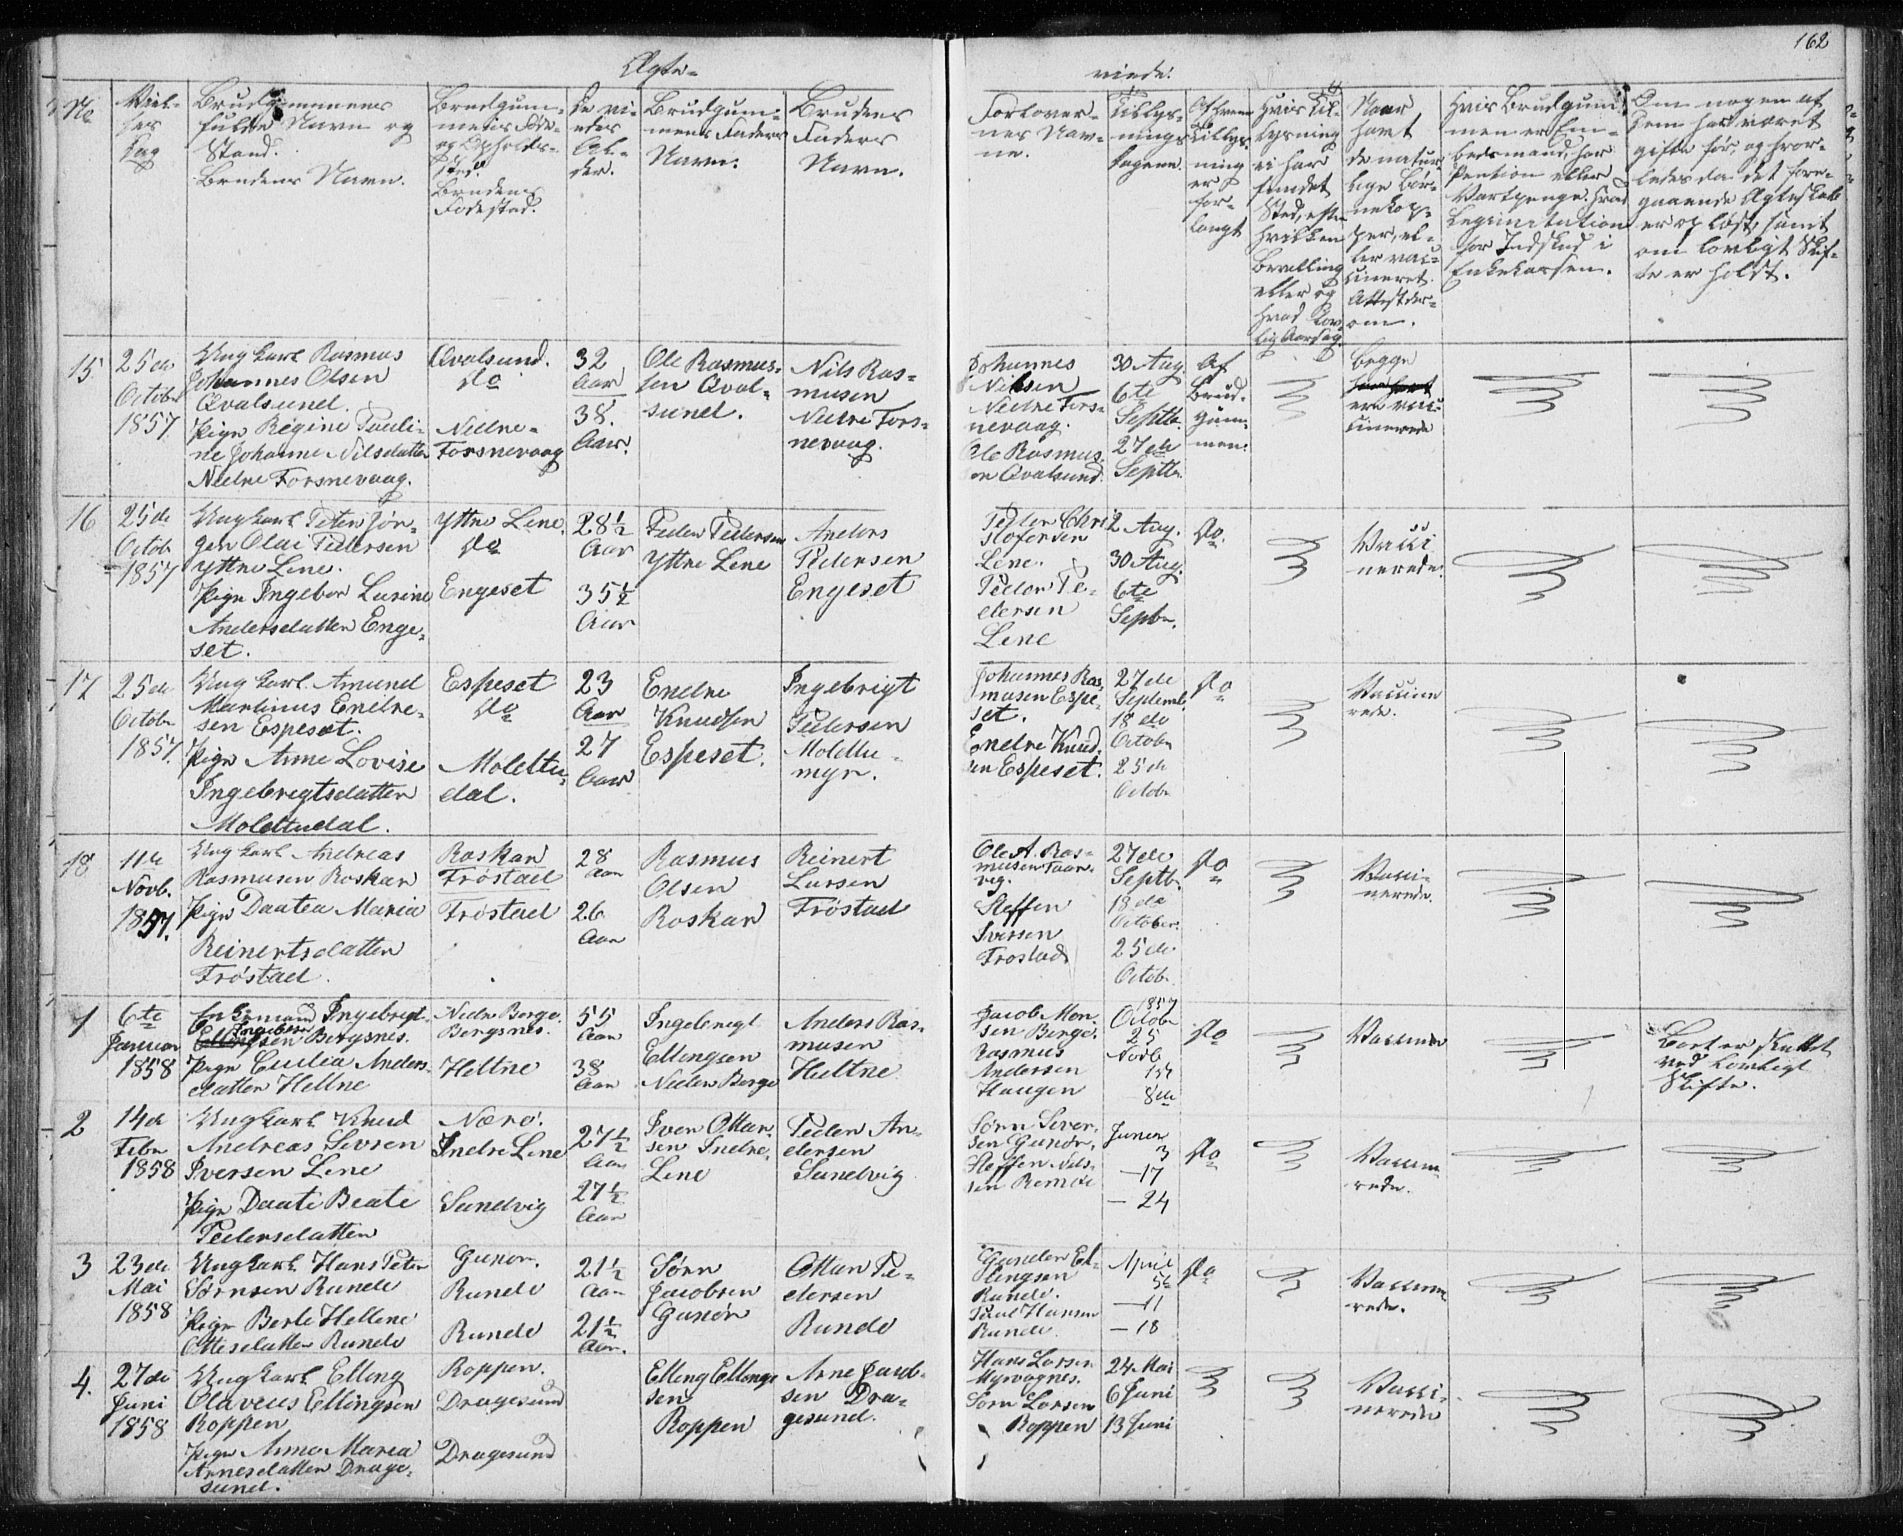 162
Ægte-
viede.
No
Viel-
ses
dag
Brudgommenes
fulde Navn og
Stand.
Brudens Navn.
Brudgom-
mens Føde-
og Opholds-
sted.
Brudens
Fødested.
De vi-
edes
Al-
der.
Brudgom-
mens Faders
Navn.
Brudens
Faders
Navn.
Forlover-
nes Nav-
ne.
Tillys-
nings
dagene.
Af hvem
Tillys-
ning
er
for-
langt
Hvis Til-
lysning
ei har
fundet
Sted, efter
hvilken
Bevilling
eller og
hvad Lov-
lig Aarsag.
Naar
havt
de natur-
lige Bør-
nekop-
per, el-
ler vac-
cineret.
Attest der-
om.
Hvis Brudgom-
men er Em-
bedsmand, har
Pention eller
Vartpenge: hvad
Legimitation
for Indskud i
Enkekassen.
Om nogen af
dem har været
gifte før, og hvor-
ledes da det fore-
gaaende Ægteskab
er opløst, samt
om lovligt Skif-
te er holdt.
15.
25de
October
1857.
Ungkarl Rasmus
Johannes Olsen
Qvalsund.
Pige Regine Pauli-
ne Johanne Nilsdatter
Nedre Forsnevaag.
Qvalsund.
do
Nedre-
Forsnevaag
32
Aar
38.
Aar.
Ole Rasmus-
sen Qval-
sund.
Nils Ras-
musen
Nedre Fors-
nevaag.
Johannes
Nilsen
Nedre Fors-
nevaag.
Ole Rasmus-
sen Qvalsund.
30 Aug.
6te
Septbr.
27de
Septbr.
Af
Brud-
gom-
men.
begge
ere vac-
cinerede
16
25de
Octob
1857
Ungkarl Peter Jør-
gen Olai Pedersen
Yttre Lene.
Pige Ingebor Lusine
Andersdatter Enge-
set.
Yttre Lene.
do
Engeset
28½
Aar
35½
Aar
Peder Pedersen
Yttre Lene
Anders
Pedersen
Engeset
Peder Chri-
stofersen
Lene.
Peder Pe-
dersen
Lene
2 Aug.
30 Aug.
6te
Septbr.
do.
Vacci
nerede.
17
25de
Octobr
1857.
Ungkarl Amund
Martinus Endre-
sen Espeset.
Pige Anne Lovise
Ingebregtsdatter
Moldtudal.
Espeset
do
Moldtu-
dal.
23
Aar
27
Aar
Endre
Knudsen
Espeset.
Ingebrigt
Pedersen
Moldtu-
myr.
Johannes Ras-
musen Espe-
set.
Endre Knud-
sen Espeset.
27de
Septemb.
18de
Octobr
25de
Octobr
do
Vaccine
rede.
18
11te
Novb.
1857.
Ungkarl Andreas
Rasmusen Roskar
Pige Daatea Maria
Reinertsdatter
Frøstad.
Roskar
Frøstad
Frøstad
28
Aar
26
Aar
Rasmus
Olsen
Roskar
Reinert
Larsen
Frøstad
Ole A. Ras-
musen Taar-
vig.
Steffen
Iversen
Frostad
27de
Septb.
18de
October.
25de
Octob.
do
Vacci-
nerede.
1
6te
Januar
1858
Enkemand Ingebrigt
Ingebrigt
sen Bergsnes.
Pige Cecilia Anders-
datter Heltne
Nedre Berge.
Bergsnes.
Heltne
55
Aar
38
Aar
Ingebregt
Ellingsen
Nedre Berge
Anders Ras-
musen
Heltne
Jacob Mon-
sen Berge.
Rasmus
Andersen
Haugen
1857
Octobr
25
Novb
1st
8de
do
Vaccine
Bort er Skilt
ved Lovligt
Skifte.
2
14de
Febr
1858
Ungkarl Knud
Andreas Sivsen
Iversen Lene
Pige Daate Beate
Pedersdatter
Nærø.
Indre Lene
Sandvig
27½
Aar
27½
Aar
Iver Ottar-
sen Indre-
Lene
Peder An-
dersen
Sandvig
Sørn Siver-
sen Gunør.
Steffen Nils-
sen Remøe
Januar
3
— 17
— 24
do
Vaccine
rede.
3
23de
Mai
1858
Ungkarl Hans Peter
Sørnsen Runde
Pige Berte Hellene
Ottesdatter Runde
Gunør.
Runde
Runde
21½
Aar
21½
Aar.
Sørn
Jacobsen
Gunør
Ottar Pe-
dersen
Runde
Gunder El-
lingsen
Runde.
Paul Hansen
Runde.
April
5te
— 11
— 18
do
Vaccine
rede.
4.
27de
Juni
1858
Ungkarl Elling
Olaveus Ellingsen
Roppen
Pige Anne Maria
Arnesdatter Drage-
sund.
Roppen.
Dragesund
Dragesund
Elling Ellings
sen
Roppen
Arne Jacob-
sen Dra-
gesund.
Hans Larsen
Myrvagnes.
Sørn Larsen
Roppen
24 Mai
6 Juni
13 Juni
Vacci-
nerede